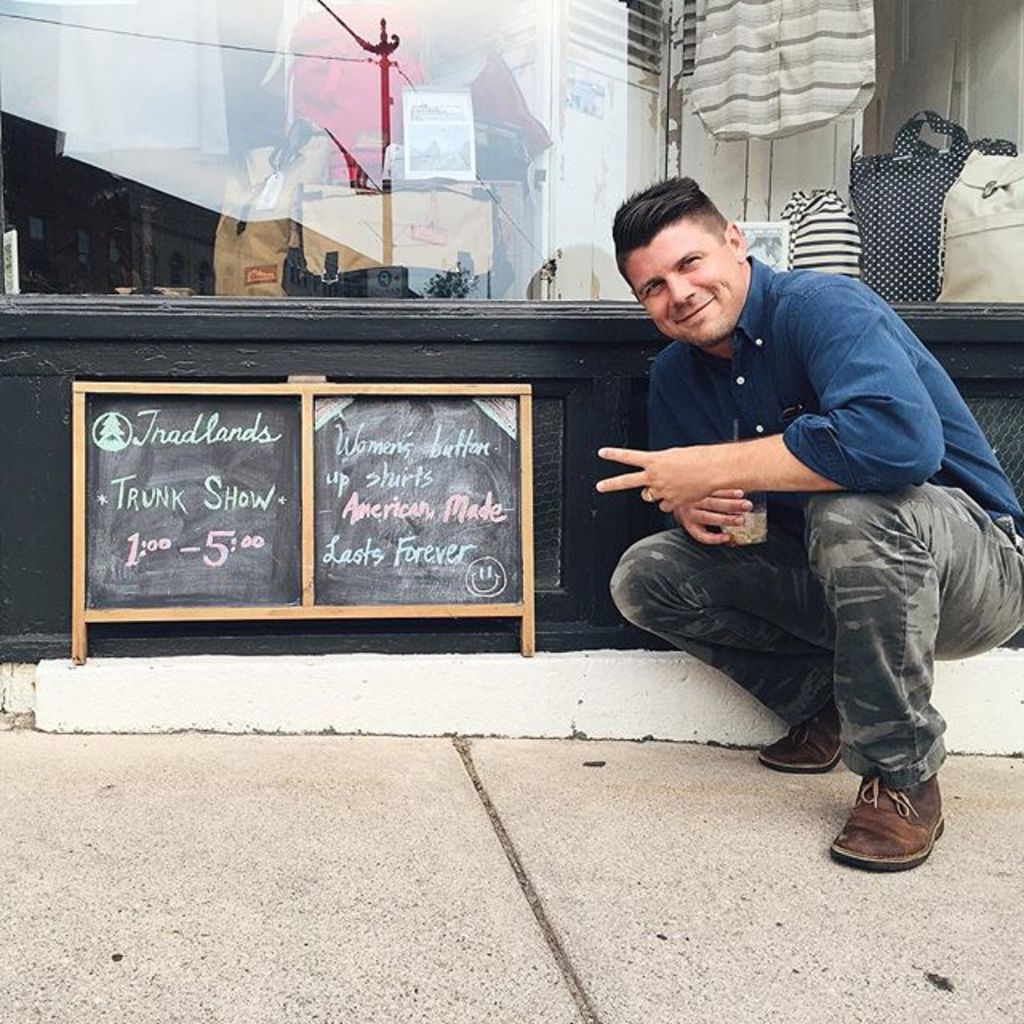 Tradlands
* TRUNK SHOW *
1:00 - 5:00
Women's button-
up shirts
American Made
Lasts Forever